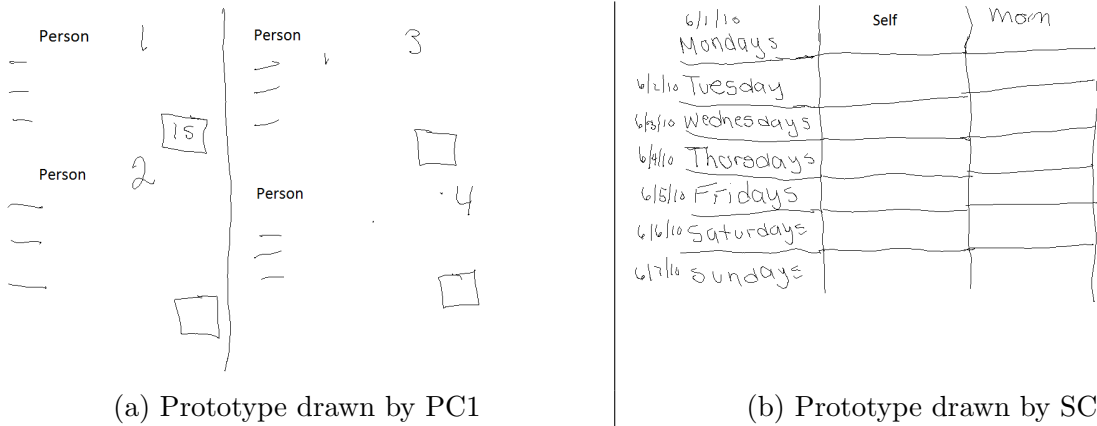 Person 1
Person 3
15
Person 2
Person 4
(a) Prototype drawn by PC1
6/1/10 Self Mom
Mondays
6/2/10 Tuesday
6/3/10 Wednesdays
6/4/10 Thorsdays
6/5/10 Fridays
6/6/10 Saturdays
6/7/10 Sundays
(b) Prototype drawn by SC